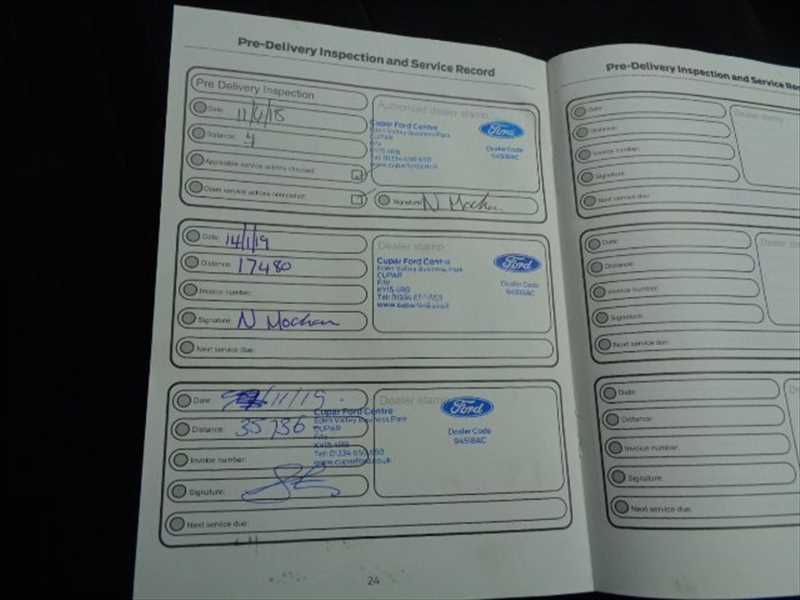 Pre-Delivery Inspection and Service Record
Pre Delivery Inspection
Date:
Distance: 4
Applicable service actions checked:
Open service actions completed:
Authorised dealer stamp
Cupar Ford Centre
Eden Valley Business Park
CUPAR
Fife
KY15 4RB
www.cuparford.co.uk
Ford
Dealer Code
94518AC
Signature: N Mochan
Date: 14/1/19
Distance: 17480
Invoice number:
Signature: N Mochan
Next service due:
Dealer stamp
Cupar Ford Centre
Eden Valley Business Park
CUPAR
Fife
KY15 4RB
www.cuparford.co.uk
Ford
Dealer Code
94518AC
Date: /11/19
Distance: 35736
Invoice number:
Signature:
Next service due:
Dealer stamp
Cupar Ford Centre
Eden Valley Business Park
CUPAR
Fife
KY15 4RB
www.cuparford.co.uk
Ford
Dealer Code
94518AC
24
Pre-Delivery Inspection and Service Reco
Date:
Distance:
Invoice number:
Signature:
Next service due:
Dealer stamp
Date:
Distance:
Invoice number:
Signature:
Next service due:
Dealer stam
Date:
Distance:
Invoice number:
Signature:
Next service due: